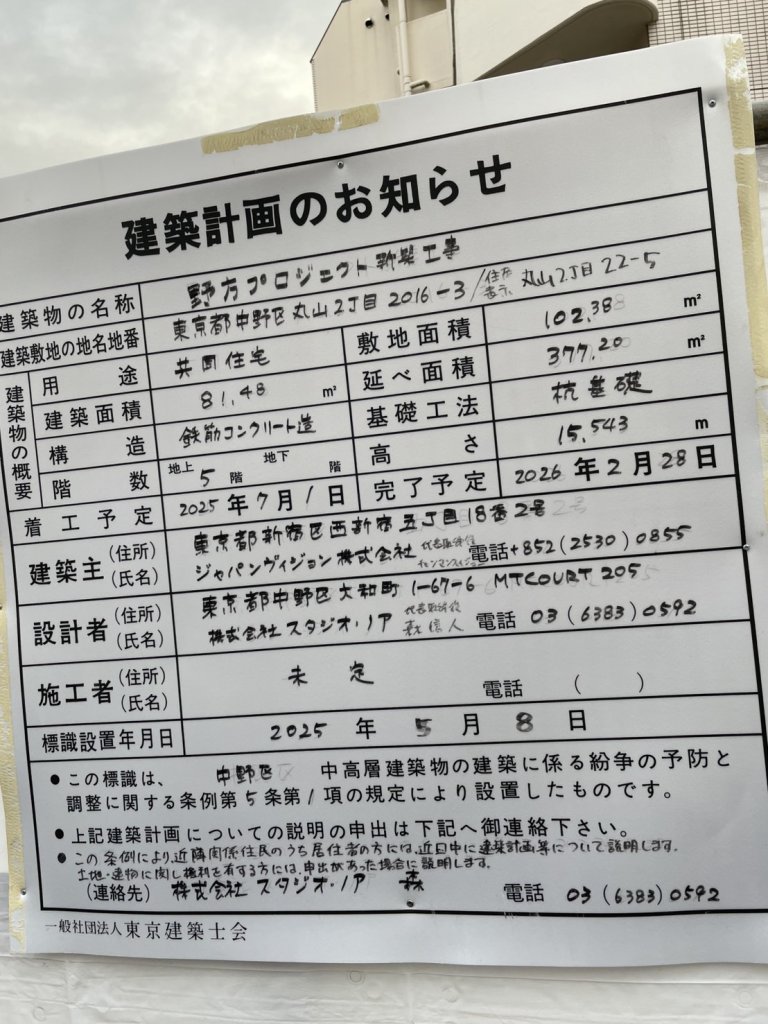 建築計画のお知らせ
建築物の名称 野方プロジェクト新築工事
建築敷地の地名地番 東京都中野区丸山2丁目2016-3/住居表示 丸山2丁目22-5
建築物の概要
用途 共同住宅 敷地面積 102.38 m²
建築面積 81.48 m² 延べ面積 377.20 m²
構造 鉄筋コンクリート造 基礎工法 杭基礎
階数 地上 5 階 地下 階 高さ 15.543 m
着工予定 2025年7月1日 完了予定 2026年2月28日
建築主(住所) 東京都新宿区西新宿五丁目18番2号
(氏名) ジャパンヴィジョン株式会社 代表取締役 電話+852(2530)0855
設計者(住所) 東京都中野区大和町1-67-6 MTCOURT 205
(氏名) 株式会社スタジオ・ノア 代表取締役 森 電話 03(6383)0592
施工者(住所) 未定
(氏名) 電話 ( )
標識設置年月日 2025年5月8日
●この標識は、中野区 中高層建築物の建築に係る紛争の予防と
調整に関する条例第5条第1項の規定により設置したものです。
●上記建築計画についての説明の申出は下記へ御連絡下さい。
●この条例により近隣関係住民のうち居住者の方には、近日中に建築計画等について説明します。
土地・建物に関し権利を有する方には、申出があった場合に説明します。
(連絡先) 株式会社スタジオ・ノア 森 電話 03(6383)0592
一般社団法人東京建築士会